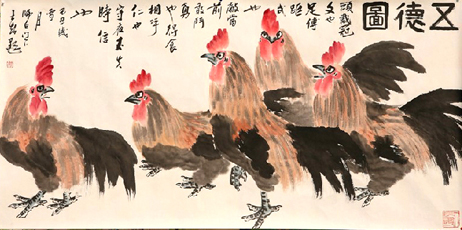 五德圖
頭戴冠
文也
足傅
距武
也
敵當
前
敢鬥
勇
也得食
相呼
仁也
守夜不失
時信
也